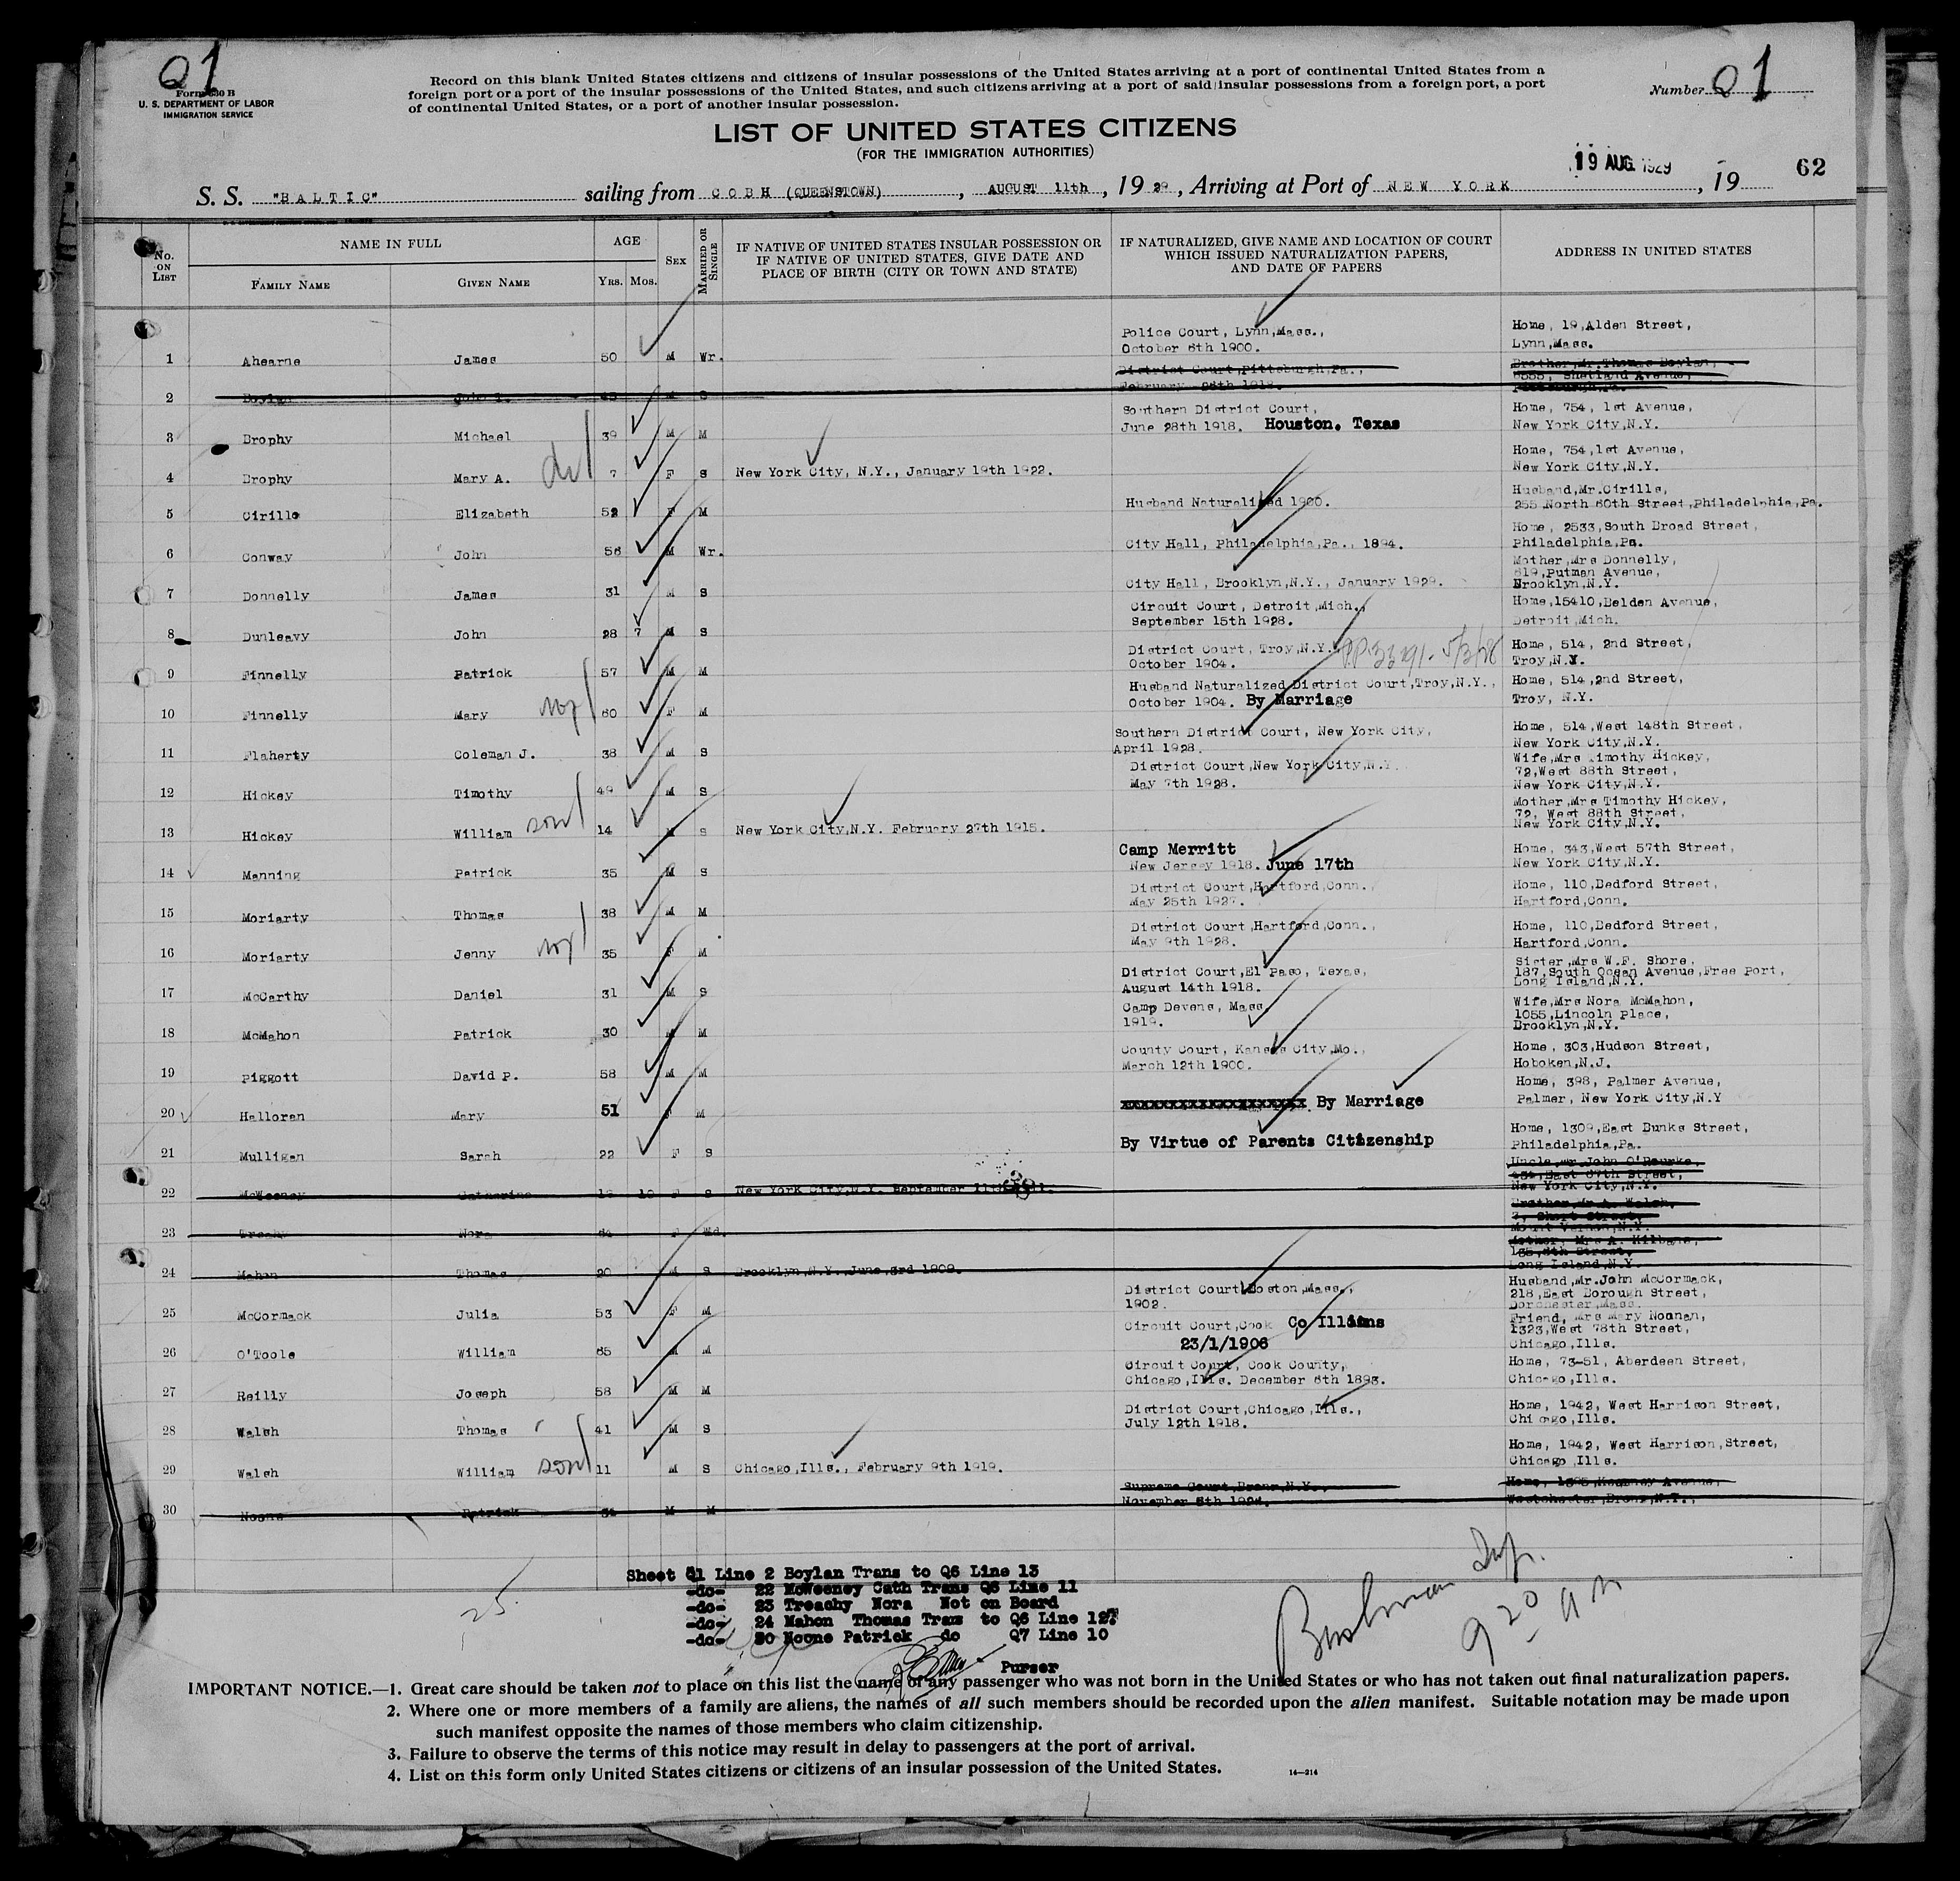 Q1
Form 630 B
U. S. DEPARTMENT OF LABOR
IMMIGRATION SERVICE
Record on this blank United States citizens and citizens of insular possessions of the United States arriving at a port of continental United States from a
foreign port or a port of the insular possessions of the United States, and such citizens arriving at a port of said insular possessions from a foreign port, a port
of continental United States, or a port of another insular possession.
Number Q1
LIST OF UNITED STATES CITIZENS
(FOR THE IMMIGRATION AUTHORITIES)
19 AUG 1929
62
S. S. "BALTIC" sailing from COBH (QUEENSTOWN), AUGUST 11th, 1929, Arriving at Port of NEW YORK, 19
No. ON LIST
NAME IN FULL
FAMILY NAME
GIVEN NAME
AGE
YRS. MOS.
SEX
MARRIED OR SINGLE
IF NATIVE OF UNITED STATES INSULAR POSSESSION OR
IF NATIVE OF UNITED STATES, GIVE DATE AND
PLACE OF BIRTH (CITY OR TOWN AND STATE)
IF NATURALIZED, GIVE NAME AND LOCATION OF COURT
WHICH ISSUED NATURALIZATION PAPERS,
AND DATE OF PAPERS
ADDRESS IN UNITED STATES
1 Ahearne James 50 M Wr. Police Court, Lynn,Mass., October 6th 1900. Home, 19,Alden Street, Lynn,Mass.
2 Boylan John 45 M S District Court,Pittsburgh,Pa., February 1918. Brother,Mr.Thomas Boylan, Shetland Avenue, Pittsburgh,Pa.
3 Brophy Michael 39 M M Southern District Court, June 28th 1918. Houston. Texas Home, 754, 1st Avenue, New York City,N.Y.
4 Brophy Mary A. 7 F S New York City, N.Y., January 19th 1922. Home, 754,1st Avenue, New York City,N.Y.
5 Cirillo Elizabeth 52 F M Husband Naturalized 1900. Husband,Mr.Cirillo, 255 North 60th Street,Philadelphia,Pa.
6 Conway John 56 M Wr. City Hall, Philadelphia,Pa., 1894. Home, 2533,South Broad Street, Philadelphia,Pa.
7 Donnelly James 31 M S City Hall, Brooklyn,N.Y., January 1929. Mother,Mrs Donnelly, 819,Putman Avenue, Brooklyn,N.Y.
8 Dunleavy John 28 7 M S Circuit Court, Detroit,Mich., September 15th 1928. Home,15410,Belden Avenue, Detroit,Mich.
9 Finnelly Patrick 57 M M District Court, Troy,N.Y. October 1904. Home, 514, 2nd Street, Troy,N.Y.
10 Finnelly Mary 60 F M Husband Naturalized District Court,Troy,N.Y., October 1904. By Marriage Home, 514,2nd Street, Troy, N.Y.
11 Flaherty Coleman J. 38 M S Southern District Court, New York City, April 1928. Home, 514,West 148th Street, New York City,N.Y.
12 Hickey Timothy 49 M S District Court,New York City,N.Y. May 7th 1928. Wife,Mrs Timothy Hickey, 72,West 88th Street, New York City,N.Y.
13 Hickey William son 14 M S New York City,N.Y. February 27th 1915. Mother,Mrs Timothy Hickey, 72, West 88th Street, New York City,N.Y.
14 Manning Patrick 35 M S Camp Merritt New Jersey 1918. June 17th Home, 343,West 57th Street, New York City,N.Y.
15 Moriarty Thomas 38 M M District Court,Hartford,Conn., May 25th 1927. Home, 110,Bedford Street, Hartford,Conn.
16 Moriarty Jenny 35 F M District Court,Hartford,Conn., May 9th 1928. Home, 110,Bedford Street, Hartford,Conn.
17 McCarthy Daniel 31 M S District Court,El Paso, Texas, August 14th 1918. Sister,Mrs W.F. Shore, 187,South Ocean Avenue,Free Port, Long Island,N.Y.
18 McMahon Patrick 30 M M Camp Devens, Mass. 1919. Wife,Mrs Nora McMahon, 1055,Lincoln Place, Brooklyn,N.Y.
19 Piggott David P. 58 M M County Court, Kansas City,Mo., March 12th 1900. Home, 303,Hudson Street, Hoboken,N.J.
20 Halloran Mary 51 F M By Marriage Home, 398, Palmer Avenue, Palmer, New York City,N.Y
21 Mulligan Sarah 22 F S By Virtue of Parents Citizenship Home, 1309,East Bunks Street, Philadelphia,Pa.
22 McWeeney Catherine 10 F S New York City,N.Y. September 11th Uncle,Mr.John O'Rourke, East 67th Street, New York City,N.Y.
23 Treachy Nora F Wd. Brother,Mr.A. Walsh, Short Street, Mount Vernon,N.Y.
24 Mahon Thomas 20 M S Brooklyn,N.Y.,June 3rd 1909. Mother, Mrs A. Kilbane, Street, Long Island,N.Y.
25 McCormack Julia 53 F M District Court,Boston,Mass., 1902. Husband,Mr.John McCormack, 218,East Borough Street, Dorchester,Mass.
26 O'Toole William 65 M M Circuit Court,Cook Co Illions 23/1/1906 Friend, Mrs Mary Noonan, 1323,West 78th Street, Chicago,Ills.
27 Reilly Joseph 58 M M Circuit Court, Cook County, Chicago,Ills. December 6th 1893. Home, 73-51, Aberdeen Street, Chicago,Ills.
28 Walsh Thomas 41 M S District Court,Chicago,Ills., July 12th 1918. Home, 1942, West Harrison Street, Chicago,Ills.
29 Walsh William son 11 M S Chicago,Ills., February 9th 1919. Home, 1942, West Harrison,Street, Chicago,Ills.
30 Noone Patrick M M Supreme Court,Bronx,N.Y., November 8th Home, Avenue, Westchester,Bronx,N.Y.,
25
Sheet Q1 Line 2 Boylan Trans to Q6 Line 13
-do- 22 McWeeney Cath Trans Q6 Line 11
-do- 23 Treachy Nora Not on Board
-do- 24 Mahon Thomas Trans to Q6 Line 12
-do- 30 Noone Patrick do Q7 Line 10
Purser
9 20 a m
IMPORTANT NOTICE.—1. Great care should be taken not to place on this list the name of any passenger who was not born in the United States or who has not taken out final naturalization papers.
2. Where one or more members of a family are aliens, the names of all such members should be recorded upon the alien manifest. Suitable notation may be made upon
such manifest opposite the names of those members who claim citizenship.
3. Failure to observe the terms of this notice may result in delay to passengers at the port of arrival.
4. List on this form only United States citizens or citizens of an insular possession of the United States.
14—214